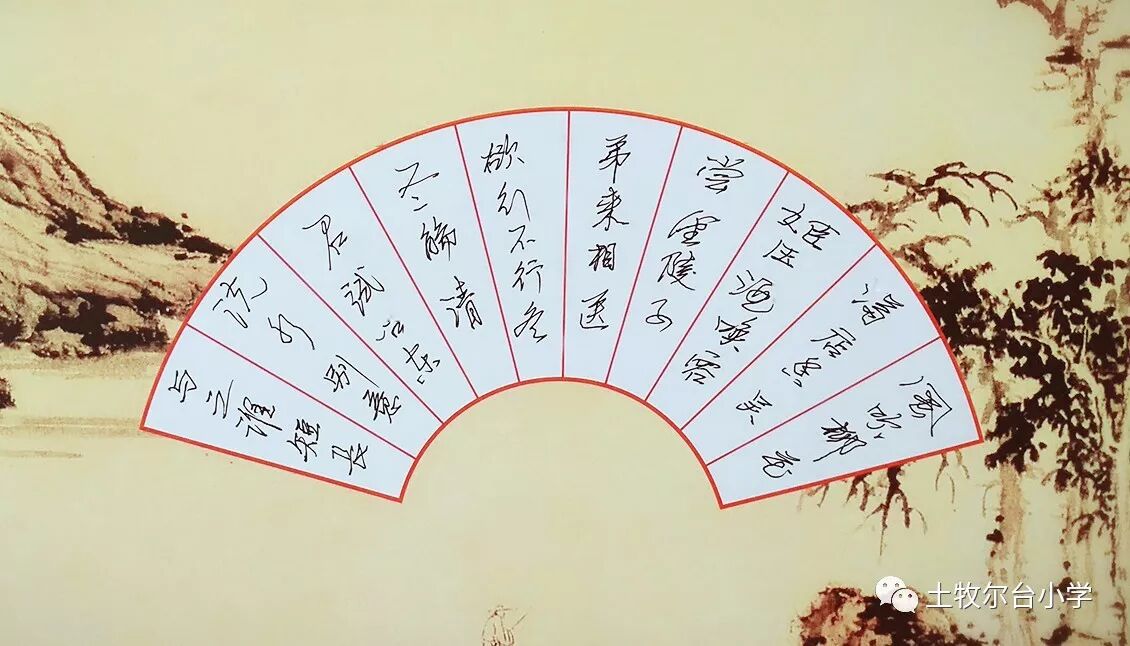 风吹柳花
满店香 吴
姬压酒唤客
尝 金陵子
弟来相送
欲行不行各
尽觞 请
君试问东
流水 别意
与之谁短长
土牧尔台小学